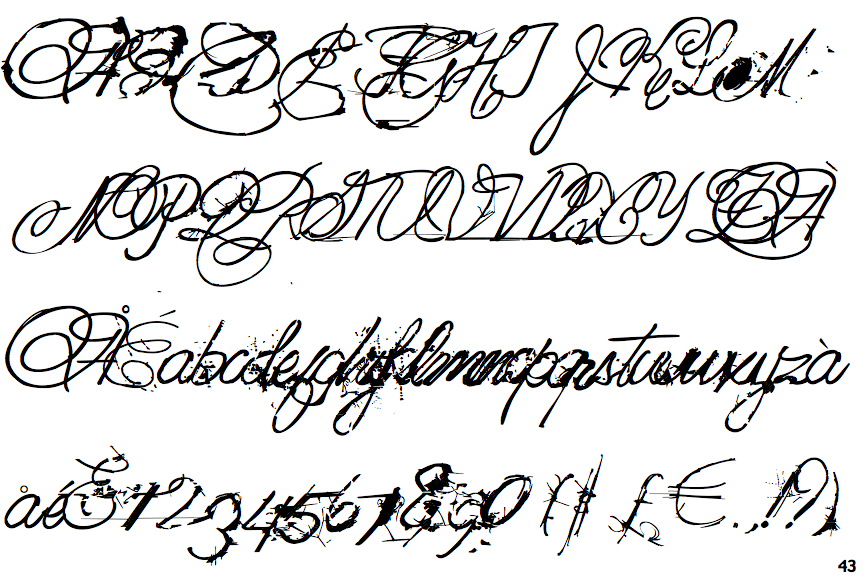 ABCDEFGHIJKLM
NOPQRSTUVWXYZÀ
ÅÉabcdefghijklmnopqrstuvwxyzà
åé&1234567890($£€.,!?)
43